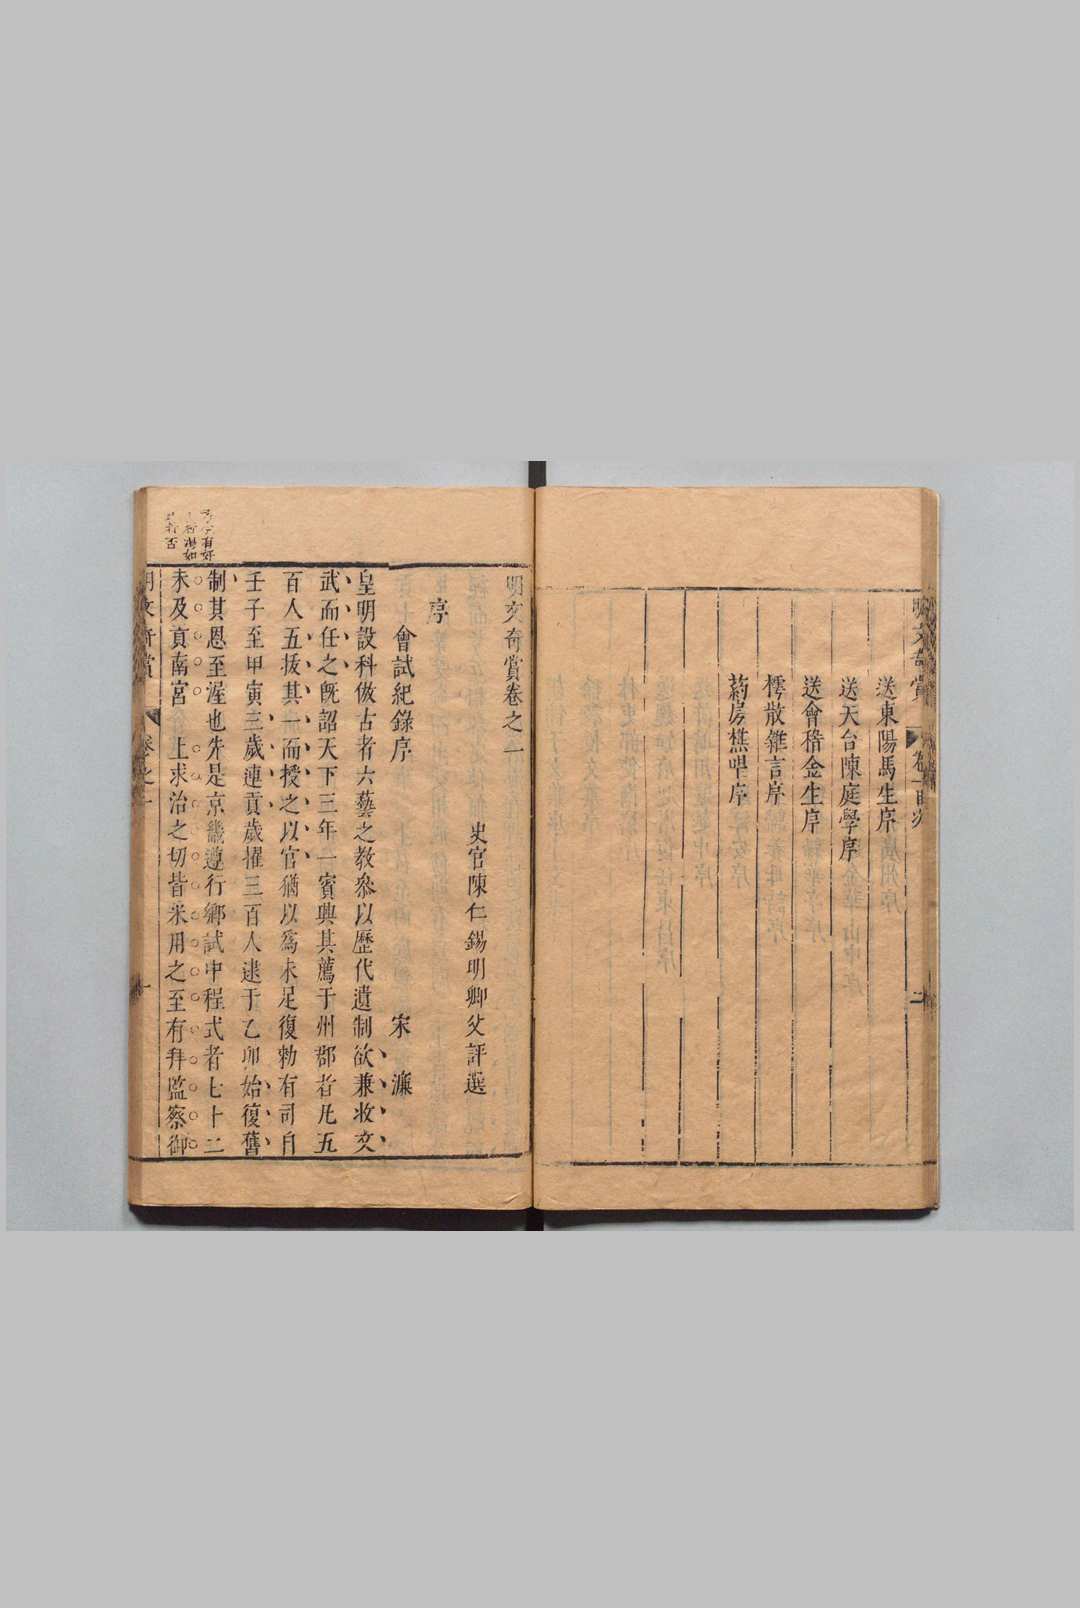 送東陽馬生序
送天台陳庭學序
送會稽金生序
樗散雜言序
葯房樵唱序
明文奇賞卷之二
史官陳仁錫明卿父評選
序
會試紀錄序 宋濂
皇明設科倣古者六藝之教叅以歷代遺制欲兼收文
武而任之既詔天下三年一賓興其薦于州郡者凡五
百人五拔其一而授之以官猶以爲未足復勑有司自
壬子至甲寅三歲連貢歲擢三百人逮于乙卯始復舊
制其恩至渥也先是京畿遵行鄉試中程式者七十二
未及貢南宮 上求治之切皆采用之至有拜監察御